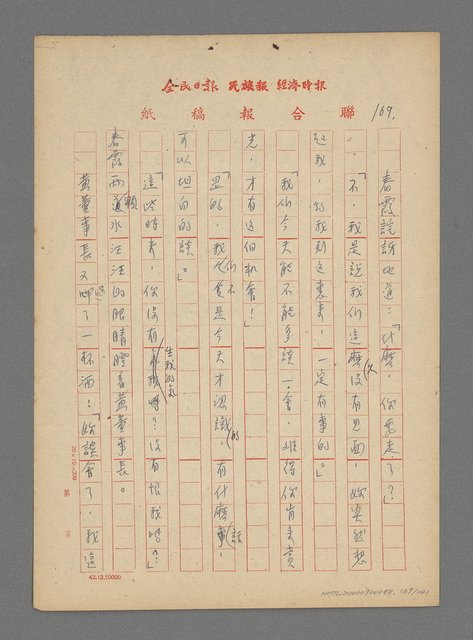 全民日報 民族報 經濟時報
聯合報稿紙
169.
春霞詫訝地道:「什麼,你要走了?」
「不,我是說我們這麼久沒有見面,妳突然想
起我,約我到這裏來,一定有事的。」
「我們今天能不能多談一會,难得你肯來賞
光,才有這個机會!」
「是的,我們又不是今天才認識的,有什麼話
可以坦白的談。」
「這些時來,你沒有生我的氣嗎?沒有恨我嗎?」
春霞兩顆水汪汪的眼睛瞪着黃董事長。
黃董事長又喝了一杯酒:「妳誤會了,我這
20×10=200
第 頁
42.12.50000
NMTL20060900088, 169/241